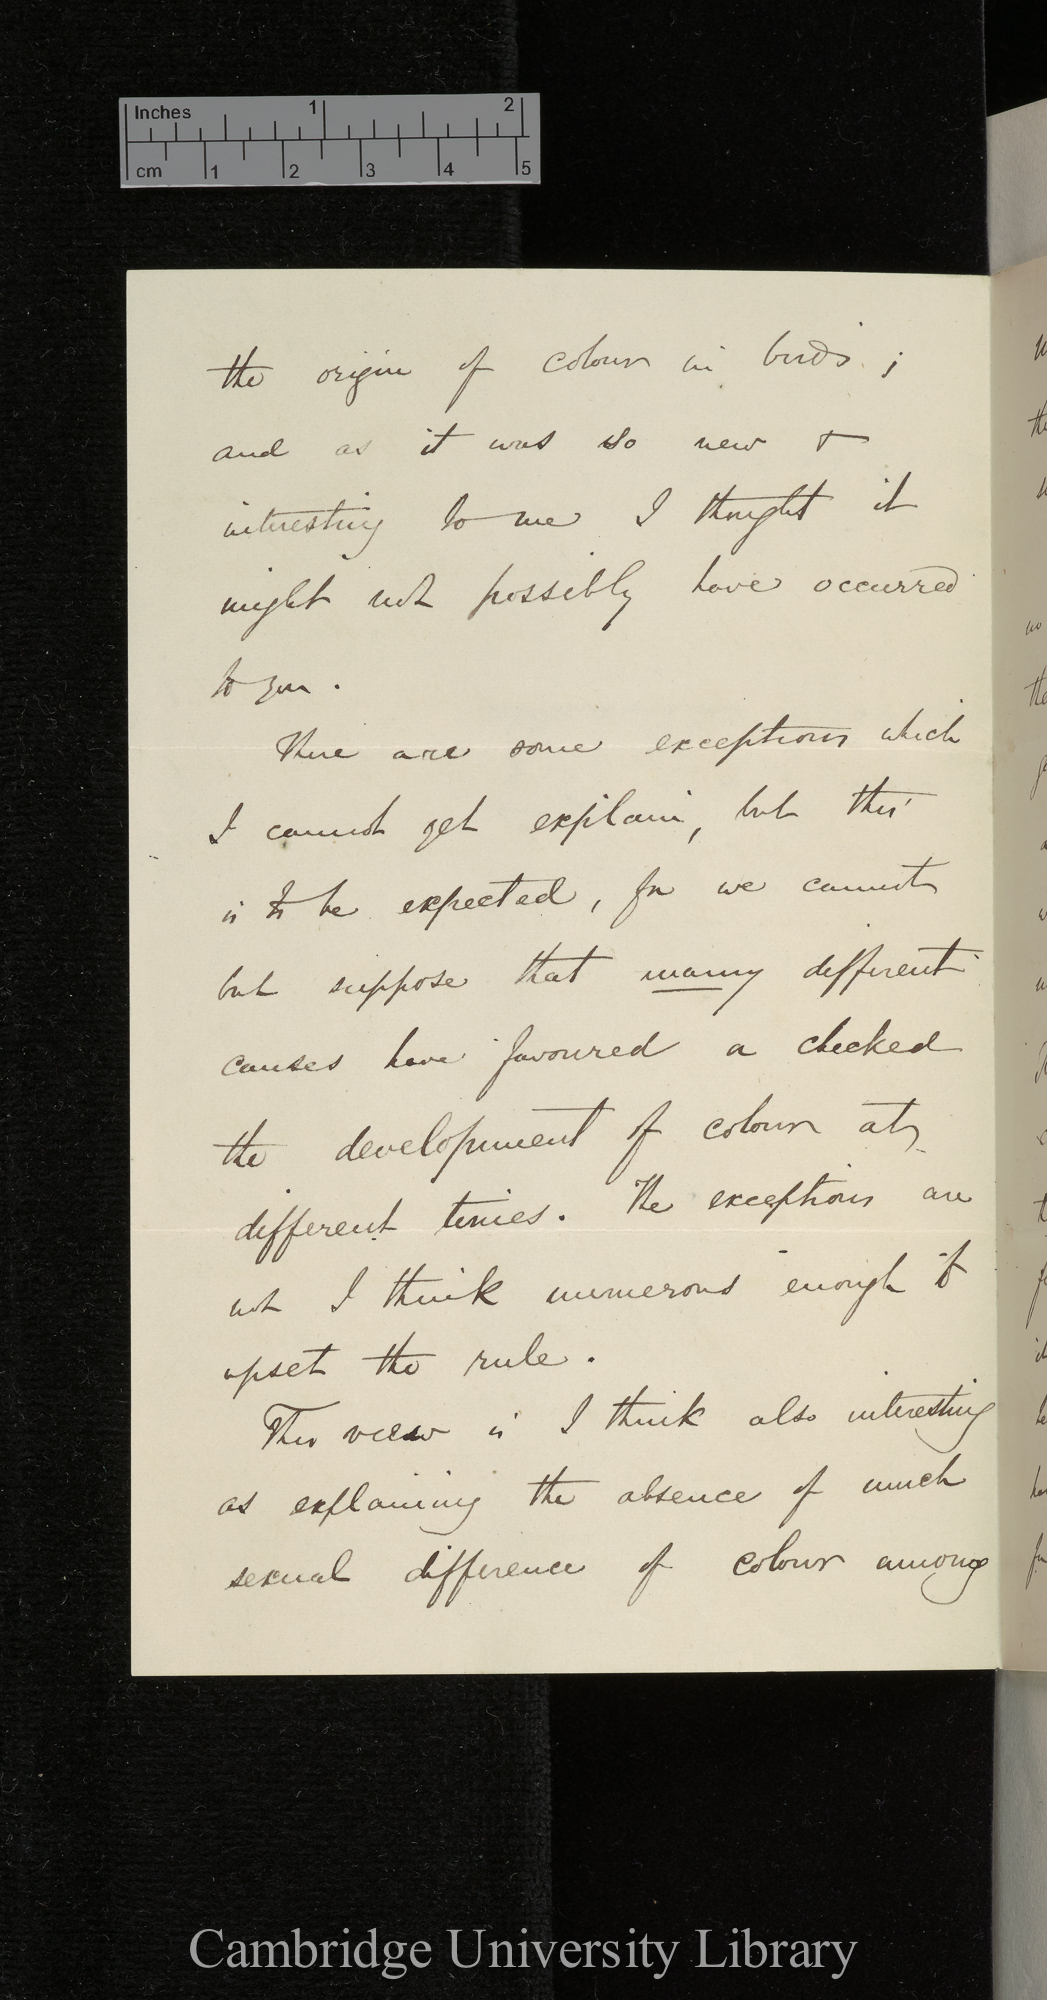 Inches 1 2
cm 1 2 3 4 5
the origin of colour in birds;
and as it was so new &
interesting to me I thought it
might not possibly have occurred
to you.
There are some exceptions which
I cannot yet explain, but this
is to be expected, for we cannot
but suppose that many different
causes have favoured or checked
the development of colour at
different times. The exceptions are
not I think numerous enough to
upset the rule.
This view is I think also interesting
as explaining the absence of much
sexual difference of colour among
Cambridge University Library